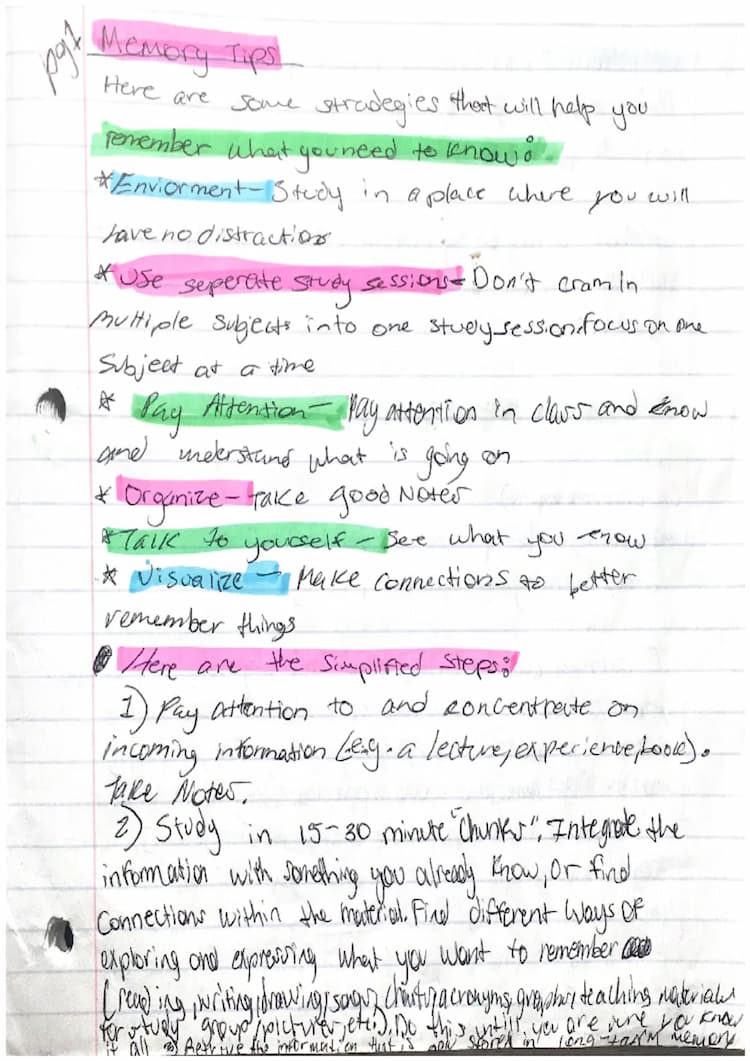 pg1
Memory Tips
Here are some stradegies that will help you
remember what you need to know:
*Enviorment- Study in a place where you will
have no distractions
*Use seperate study sessions- Don't cram in
multiple subjects into one study session. focus on one
subject at a time
* Pay Attention- Pay attention in class and know
and understand what is going on
* Organize- Take good Notes
*Talk to yourself - See what you know
* Visualize - Make connections to better
remember things
Here are the Simplified Steps:
1) Pay attention to and concentrate on
incoming information (e.g. a lecture, experience, book).
Take Notes.
2) Study in 15-30 minute "Chunks". Integrate the
information with something you already know, or find
connections within the material. Find different ways of
exploring and expressing what you want to remember
(reading, writing, drawing, songs, charts, acronyms, graphs, teaching, materials
for study group, pictures, etc.). Do this untill you are sure you know
it all 3) Retrive the information that is now stored in long-term memory